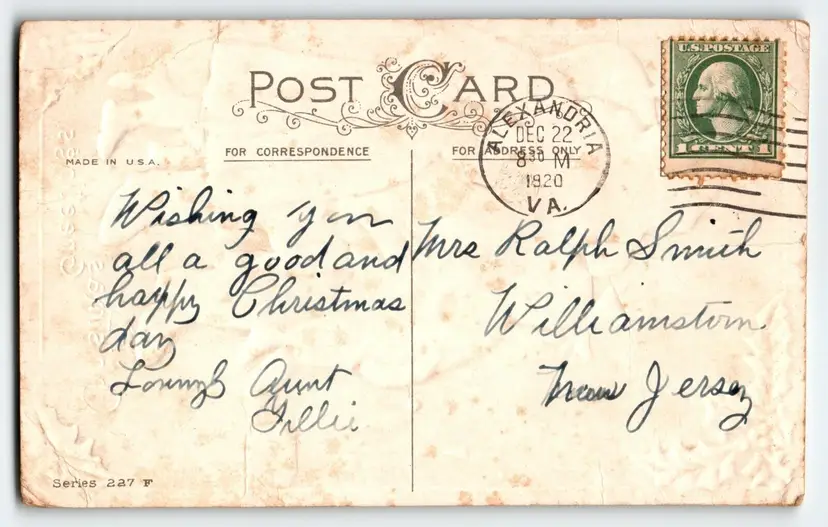 POST CARD
U.S. POSTAGE
1 CENT 1
ALEXANDRIA
DEC 22
8 30 M
1920
VA.
MADE IN U.S.A.
FOR CORRESPONDENCE
FOR ADDRESS ONLY
Wishing you
all a good and
happy Christmas
day
Lovingly Aunt
Tillie
Mrs Ralph Smith
Williamstown
New Jersey
Series 227 F